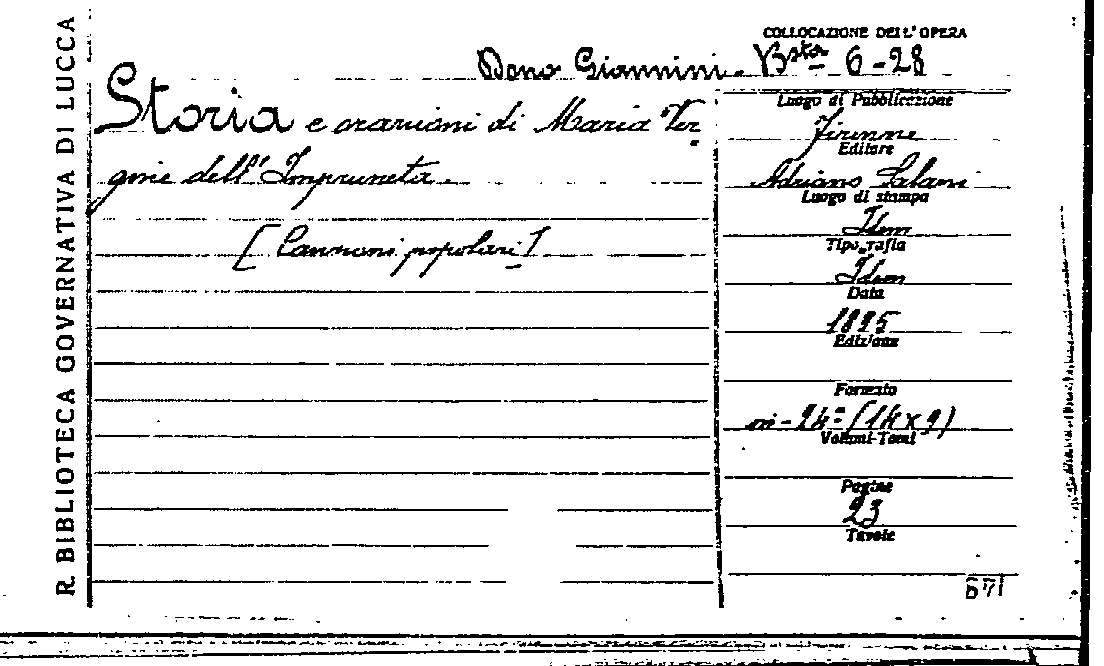 R. BIBLIOTECA GOVERNATIVA DI LUCCA
COLLOCAZIONE DELL'OPERA
Dono Giannini. Bsta 6-28
Storia e orazioni di Maria Ver
gine dell'Impruneta.
[Canzoni popolari]
Luogo di Pubblicazione
Firenze
Editore
Adriano Salani
Luogo di stampa
Idem
Tipografia
Idem
Data
1895
Edizione
Formato
in-24° (14x9)
Volumi-Tomi
Pagine
23
Tavole
671